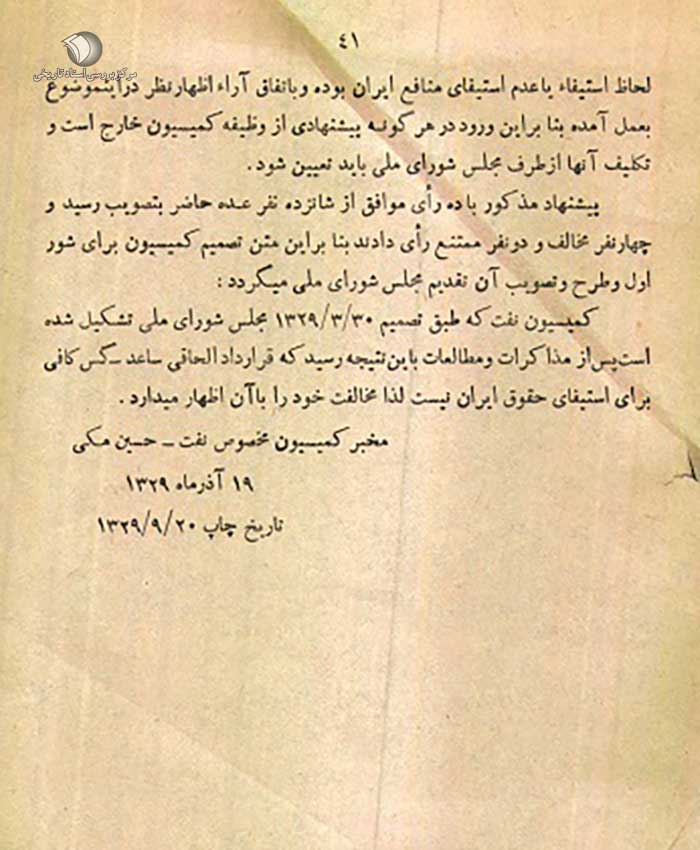 مرکز بررسی اسناد تاریخی
٤١
لحاظ استیفاء یا عدم استیفای منافع ایران بوده و باتفاق آراء اظهار نظر در اینموضوع
بعمل آمده بنا براین ورود در هر گونه پیشنهادی از وظیفه کمیسیون خارج است و
تکلیف آنها از طرف مجلس شورای ملی باید تعیین شود .
پیشنهاد مذکور با ده رأی موافق از شانزده نفر عده حاضر بتصویب رسید و
چهار نفر مخالف و دونفر ممتنع رأی دادند بنا براین متن تصمیم کمیسیون برای شور
اول و طرح و تصویب آن تقدیم مجلس شورای ملی میگردد :
کمیسیون نفت که طبق تصمیم ۱۳۲۹/۳/۳۰ مجلس شورای ملی تشکیل شده
است پس از مذاکرات و مطالعات باین نتیجه رسید که قرارداد الحاقی ساعد ـ گس کافی
برای استیفای حقوق ایران نیست لذا مخالفت خود را با آن اظهار میدارد .
مخبر کمیسیون مخصوص نفت ـ حسین مکی
۱۹ آذرماه ۱۳۲۹
تاریخ چاپ ۱۳۲۹/۹/۲۰